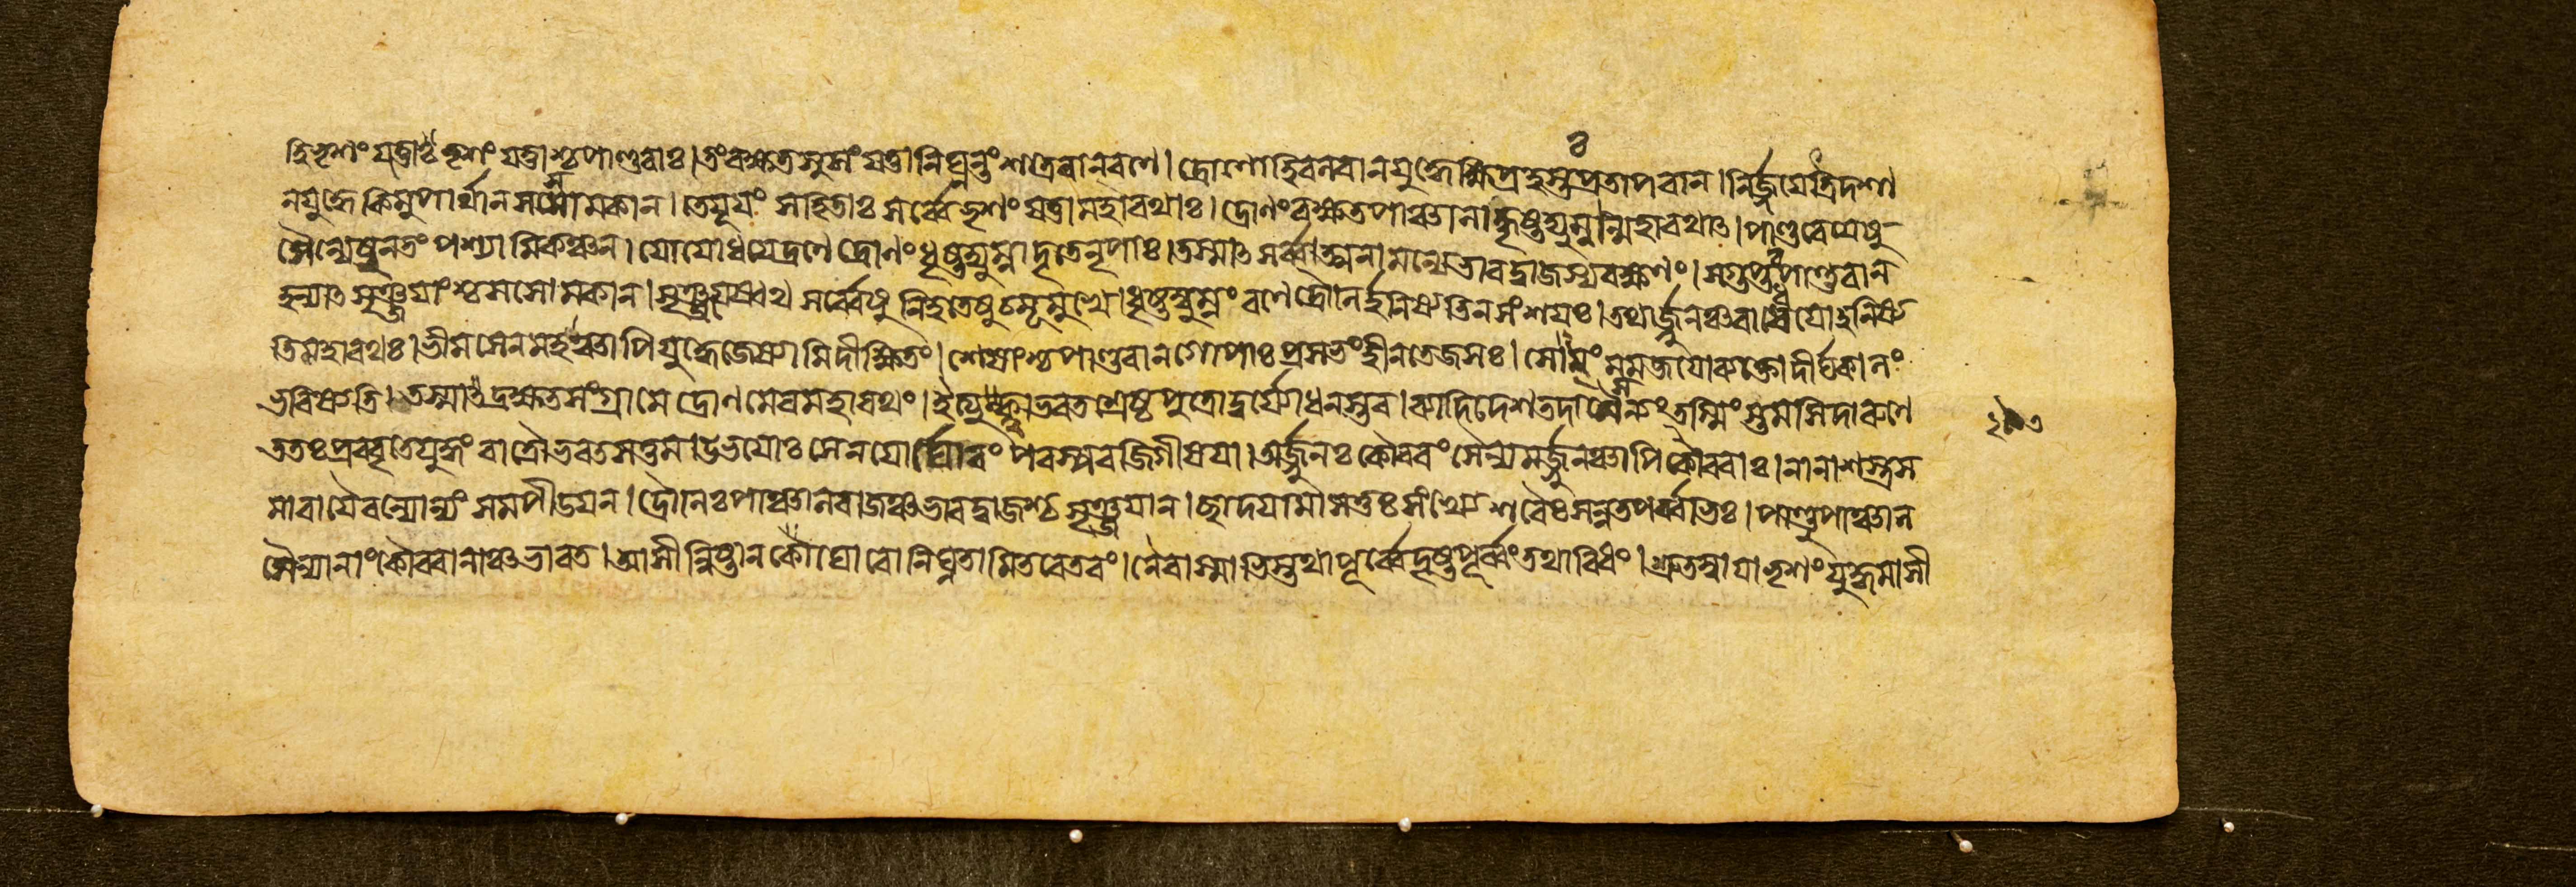 হি ভৃশং যত্তাঃ ভৃশং যত্তাশ্চ পাণ্ডবাঃ। তং রক্ষত সুসংযত্তা নিঘ্নন্তং শত্রবান্ রণে। দ্রোণো হি বলবান যুদ্ধে ক্ষিপ্রহস্তঃ প্রতাপবান। নির্জ্জয়েত্রিদশা
ন যুদ্ধে কিমু পার্থান সসোমকান। তে যূয়ং সহিতাঃ সর্ব্বে ভৃশং যত্তা মহারথাঃ। দ্রোণং রক্ষত পাঞ্চালান্ধৃষ্টদ্যুম্নান্মহারথাৎ। পাণ্ডবেয়েষু
সৈন্যেষু ন তং পশ্যামি কঞ্চন। যো যোধয়েদ্রণে দ্রোণং ধৃষ্টদ্যুম্নাদৃতে নৃপাঃ। তস্মাৎ সর্ব্বাত্মনা মন্যে ভারদ্বাজস্য রক্ষণং। স গুপ্তঃ পাণ্ডবান
হন্যাৎ সৃঞ্জয়াংশ্চ সসোমকান। সৃঞ্জয়েষ্বথ সর্ব্বেষু নিহতেষু চমূমুখে। ধৃষ্টদ্যুম্নং রণে দ্রৌণির্হনিষ্যতি ন সংশয়ঃ। তথার্জ্জুনঞ্চ রাধেয়ো হনিষ্য
তি মহারথঃ। ভীমসেনমহঞ্চাপি যুদ্ধে জেষ্যামি দীক্ষিতং। শেষাংশ্চ পাণ্ডবান যোধাঃ প্রসভং হীনতেজসঃ। সোয়ং মম জয়ো ব্যক্তো দীর্ঘকালং
ভবিষ্যতি। তস্মাদ্রক্ষত সংগ্রামে দ্রোণমেব মহারথং। ইত্যুক্ত্বা ভরতশ্রেষ্ঠ পুত্রো দুর্য্যোধনস্তব। ব্যাদিদেশ তদা সৈন্যং তস্মিংস্তমসি দারুণে
ততঃ প্রববৃতে যুদ্ধং রাত্রৌ ভরতসত্তম। উভয়োঃ সেনয়োর্ঘোরং পরস্পরজিগীষয়া। অর্জ্জুনঃ কৌরবং সৈন্যমর্জ্জুনঞ্চাপি কৌরবাঃ। নানাশস্ত্রস
মাবায়ৈরন্যোন্যং সমপীডয়ন। দ্রৌণিঃ পাঞ্চালরাজঞ্চ ভারদ্বাজশ্চ সৃঞ্জয়ান। ছাদয়ামাসতুঃ সংখ্যে শরৈঃ সন্নতপর্ব্বভিঃ। পাণ্ডুপাঞ্চাল
সৈন্যানাং কৌরবানাঞ্চ ভারত। আসীন্নিষ্টানকো ঘোরো নিঘ্নতামিতরেতরং। নৈবাস্মাভিস্তথা পূর্ব্বে দৃষ্টপূর্ব্বং তথাবিধং। শ্রুতম্বা যাদৃশং যুদ্ধমাসী